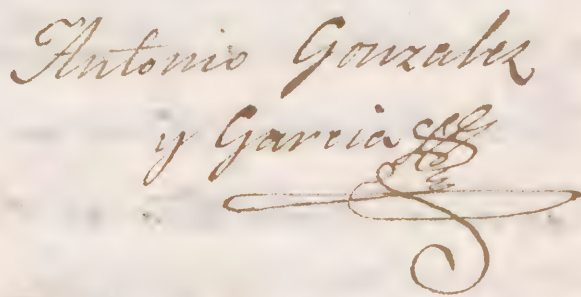 Antonio Gonzalez
y Garcia